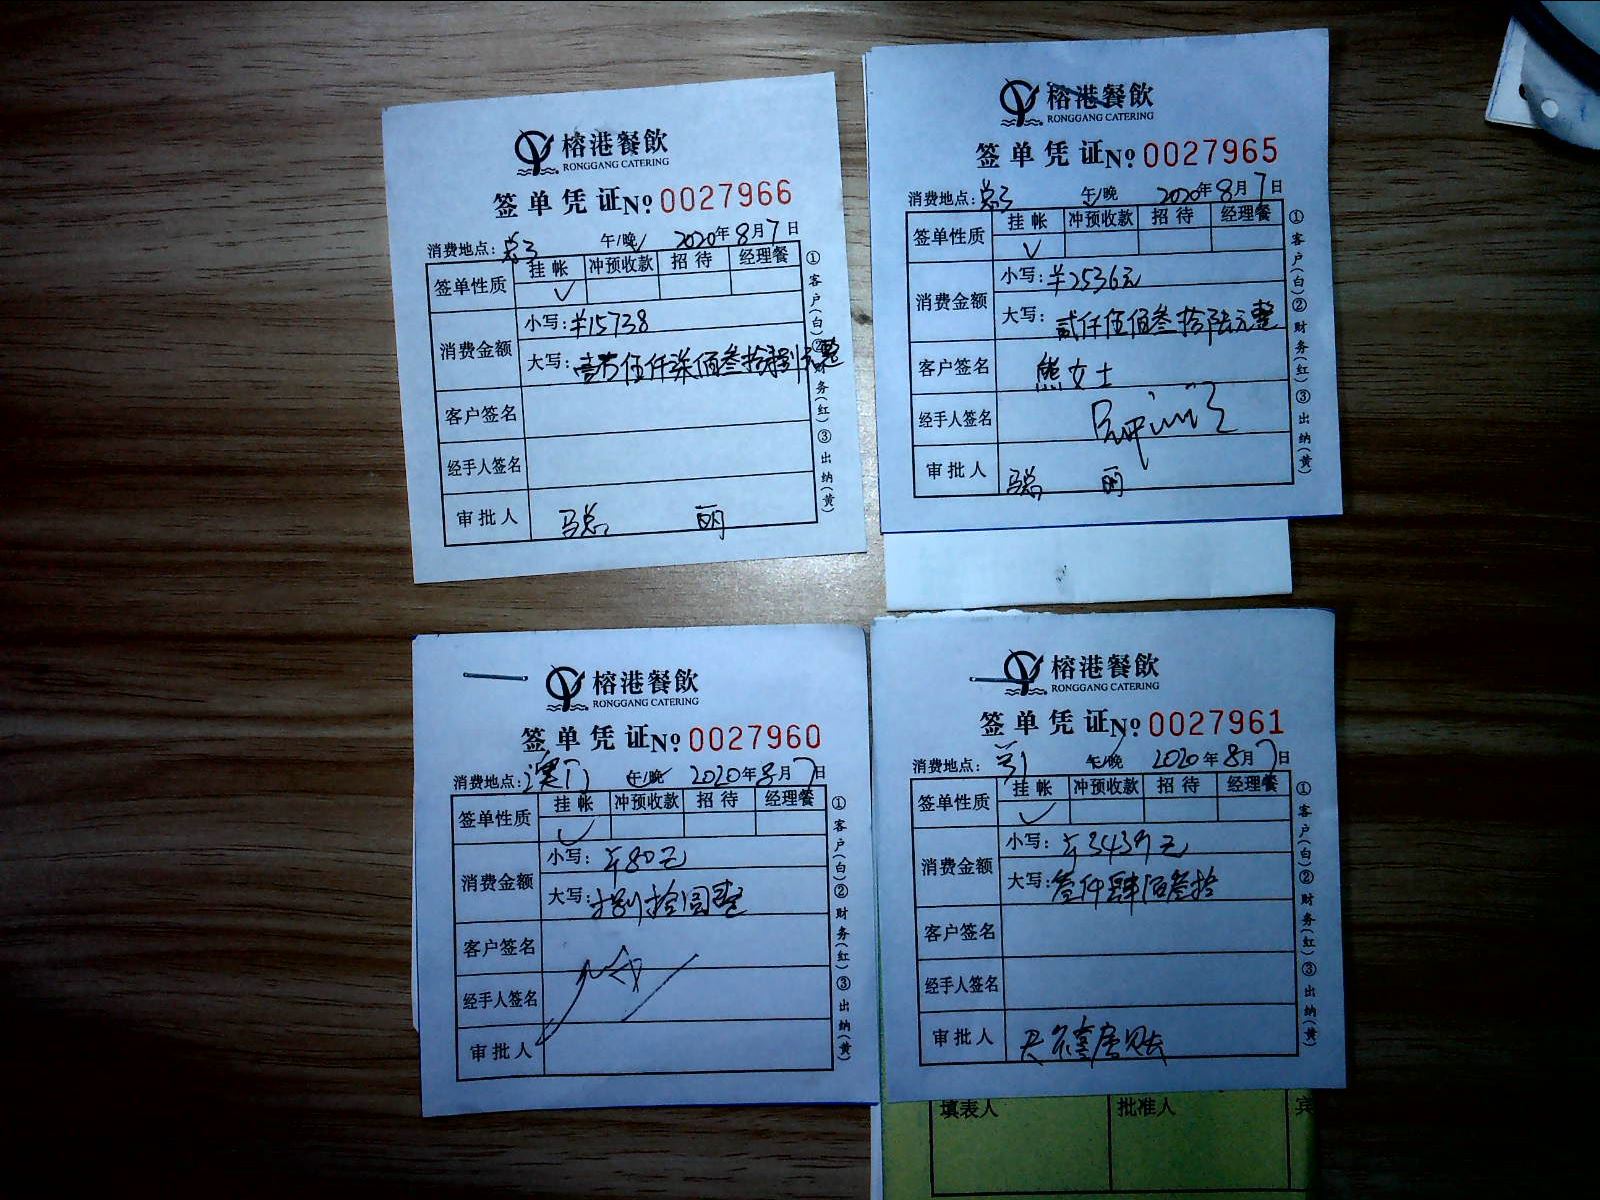 榕港餐飲
RONGGANG CATERING
签单凭证 No 0027966
消费地点: 总3 午/晚 2020年8月7日
签单性质 挂帐 冲预收款 招待 经理餐
√
消费金额 小写: ¥15738
大写: 壹万伍仟柒佰叁拾捌元整
客户签名
经手人签名
审批人 马总 丽
①客户(白)②财务(红)③出纳(黄)
榕港餐飲
RONGGANG CATERING
签单凭证 No 0027965
消费地点: 总3 午/晚 2020年8月7日
签单性质 挂帐 冲预收款 招待 经理餐
√
消费金额 小写: ¥2536元
大写: 贰仟伍佰叁拾陆元整
客户签名 熊女士
经手人签名
审批人 马总 丽
①客户(白)②财务(红)③出纳(黄)
榕港餐飲
RONGGANG CATERING
签单凭证 No 0027960
消费地点: 澳门 午/晚 2020年8月7日
签单性质 挂帐 冲预收款 招待 经理餐
√
消费金额 小写: ¥80元
大写: 捌拾圆整
客户签名
经手人签名
审批人
①客户(白)②财务(红)③出纳(黄)
榕港餐飲
RONGGANG CATERING
签单凭证 No 0027961
消费地点: 午/晚 2020年8月7日
签单性质 挂帐 冲预收款 招待 经理餐
√
消费金额 小写:
大写: 仟肆佰叁拾
客户签名
经手人签名
审批人
①客户(白)②财务(红)③出纳(黄)
填表人 批准人 宾